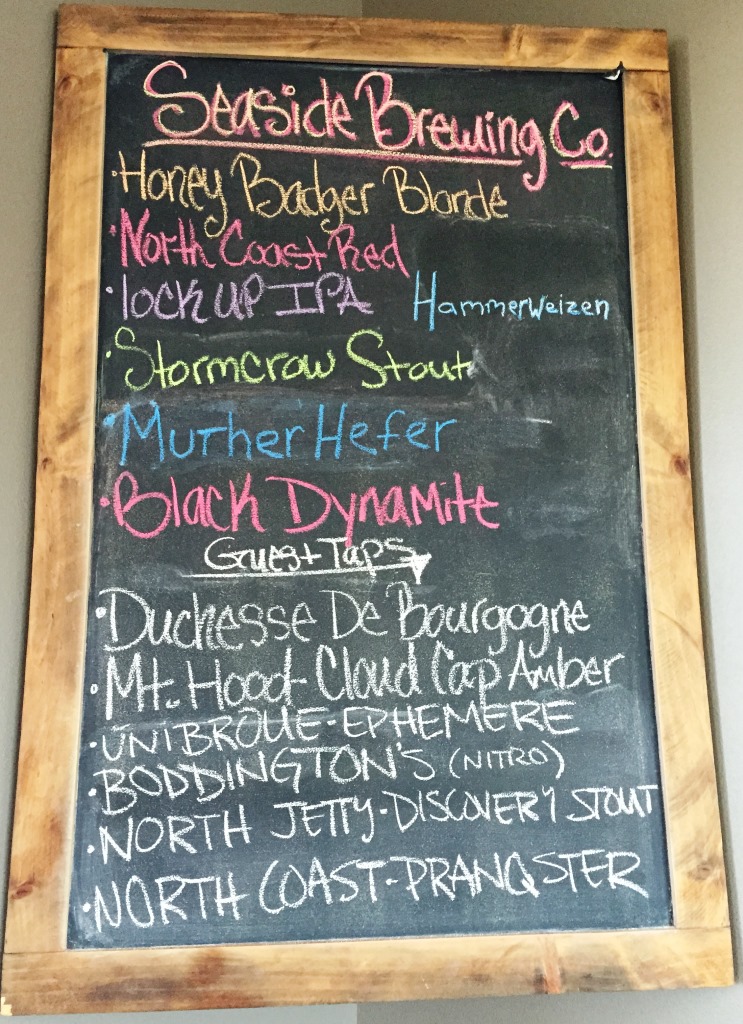 Seaside Brewing Co.
• Honey Badger Blonde
• North Coast Red
• lock up IPA Hammerweizen
• Stormcrow Stout
• Muther Hefer
• Black Dynamite
Guest Taps
• Duchesse De Bourgogne
• Mt. Hood- Cloud Cap Amber
• UNIBROUE-EPHEMERE
• BODDINGTON'S (NITRO)
• NORTH JETTY-DISCOVERY STOUT
• NORTH COAST-PRANQSTER